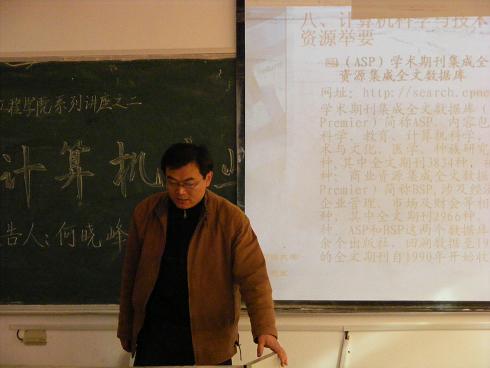 工程学院系列讲座之二
计算机 业
告人：何晓峰
八、计算机科学与技术
资源举要
（ASP）学术期刊集成全
资源集成全文数据库
网址：http://search.epne
学术期刊集成全文数据库（
Premier）简称ASP，内容包
科学、教育、计算机科学、
术与文化、医学、种族研究
种,其中全文期刊3834种，
种；商业资源集成
Premier）简称BSP,涉及经济
企业管理、市场及财会等相
种，其中全文期刊2966种
种，ASP和BSP这两个数据库
余个出版社，回溯数据至19
的全文期刊自1990年开始收